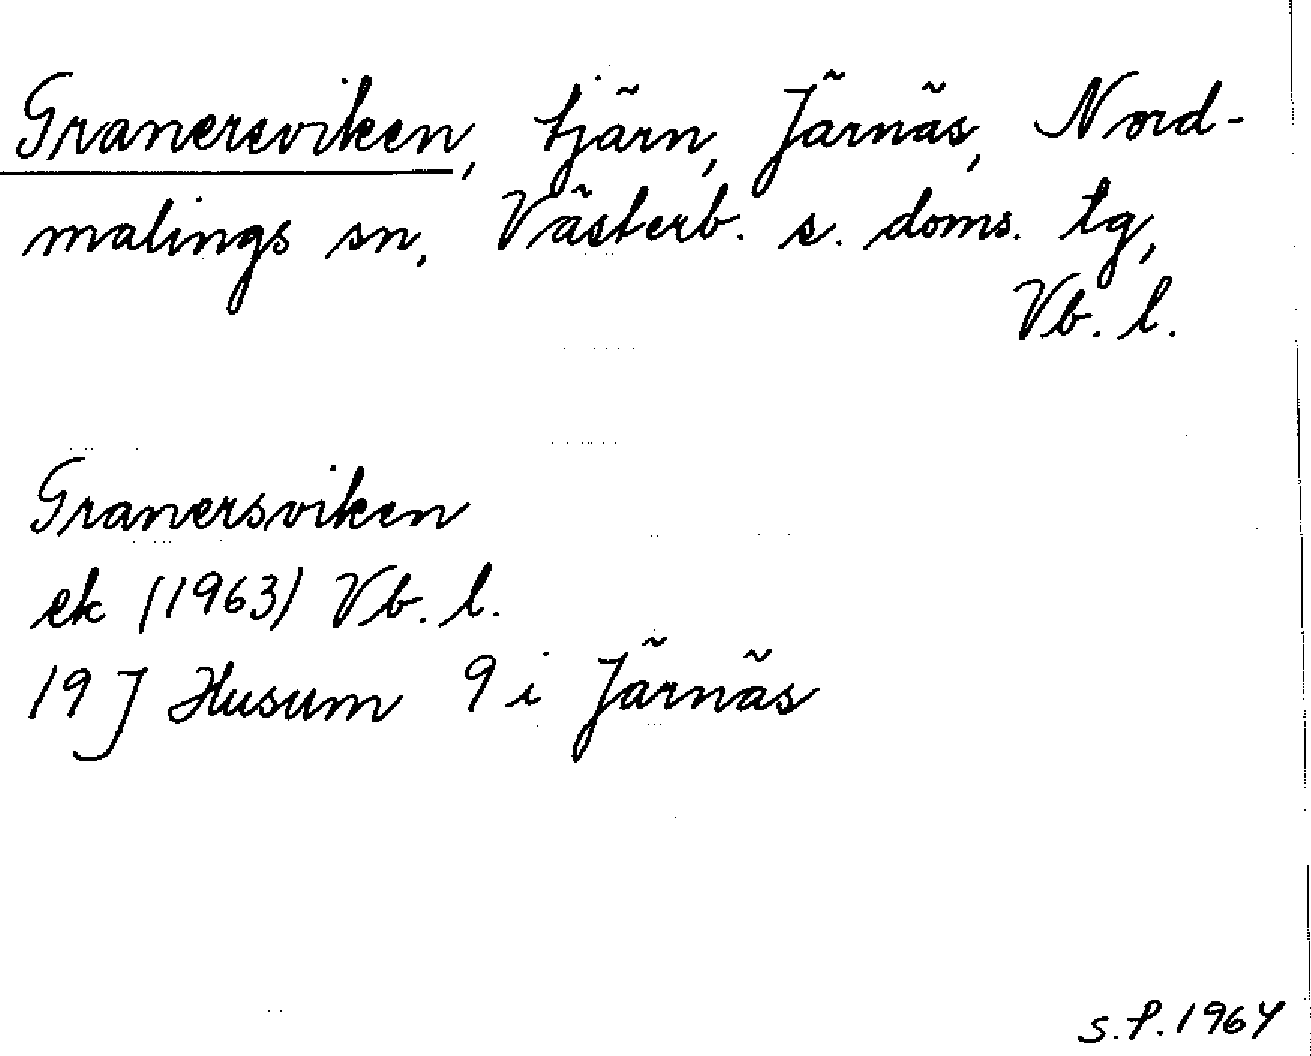 Granersviken, tjärn, Järnäs, Nord-
malings sn, Västerb. s. doms. tg,
Vb. l.
Granersviken
ek (1963) Vb. l.
19 J Husum 9 i Järnäs
S.P. 1964